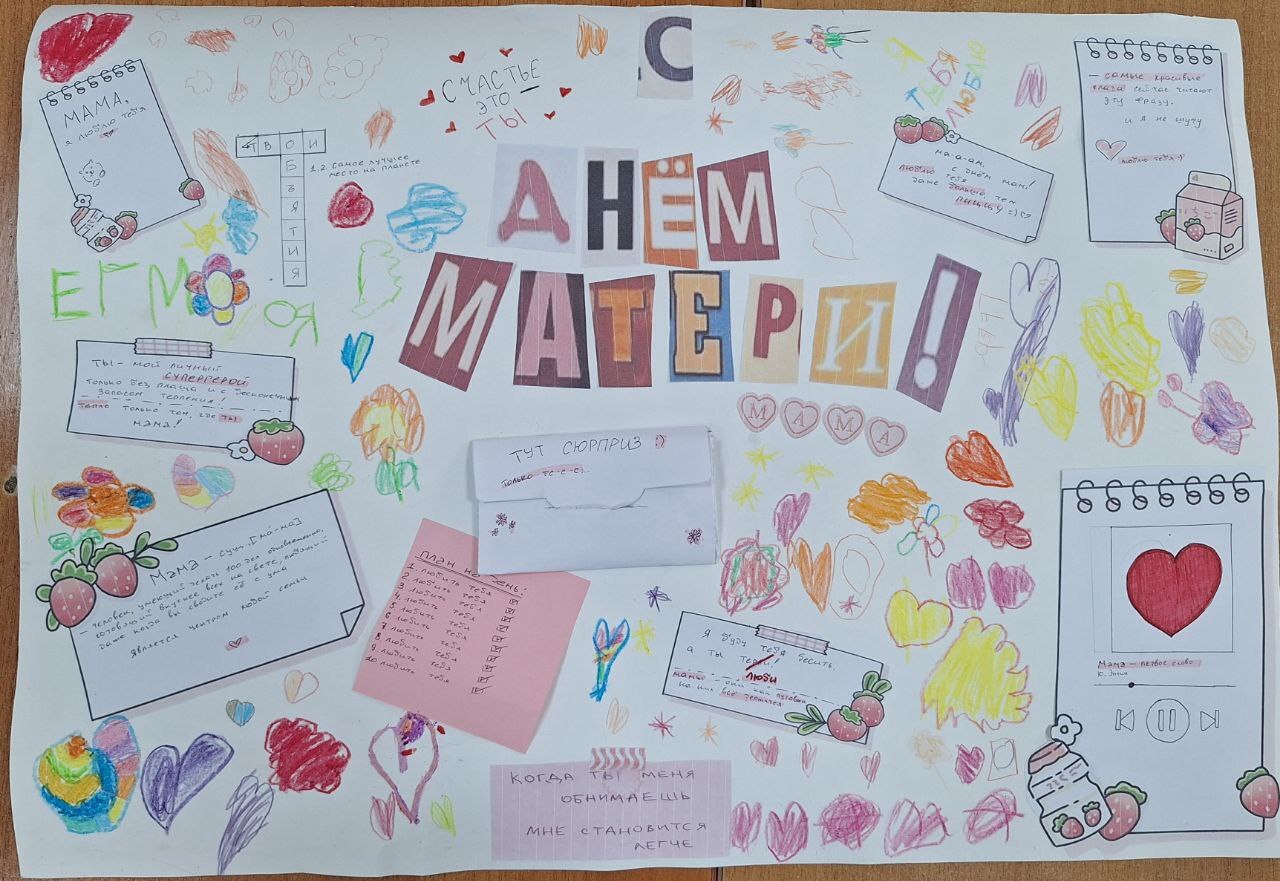 С
ДНЁМ
МАТЕРИ!
СЧАСТЬЕ
ЭТО
ТЫ
МАМА,
я люблю тебя
ТВОИ
ОБЪЯТИЯ
1.2. Самое лучшее
место на планете
ТЕБЯ
Я
ЛЮБЛЮ
ма-а-ам,
с днём мам!
люблю тебя
даже больше чем
пиццу =)
— самые красивые
глаза сейчас читают
эту фразу.
и я не шучу
люблю тебя :)
いちご
ЕГМ
ОЯ
Ты - мой личный
СУПЕРГЕРОЙ
только без плаща и с бесконечным
запасом терпения!
тепло только там, где ты
мама!
МАМА
ТУТ СЮРПРИЗ :)
только тс-с-с!..
Мама - сущ. [ма-ма]
- человек, умеющий делать 100 дел одновременно,
готовящий вкуснее всех на свете, любящий
даже когда вы сводите её с ума
является центром любой семьи
ПЛАН НА ДЕНЬ:
1. любить тебя
2. любить тебя
3. любить тебя
4. любить тебя
5. любить тебя
6. любить тебя
7. любить тебя
8. любить тебя
9. любить тебя
10. любить тебя
Я буду тебя бесить,
а ты терпи!
люби
мамы - они как пуговки
на них всё держится
Мама - первое слово
Ю. Энтин
КОГДА ТЫ МЕНЯ
ОБНИМАЕШЬ
МНЕ СТАНОВИТСЯ
ЛЕГЧЕ